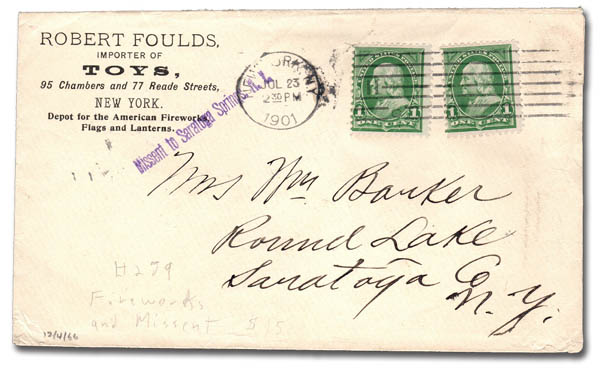 ROBERT FOULDS,
IMPORTER OF
TOYS,
95 Chambers and 77 Reade Streets,
NEW YORK.
Depot for the American Fireworks
Flags and Lanterns.
Missent to Saratoga Springs, N.Y.
JUL 23
2 30 PM
1901
1 ONE CENT 1
1 ONE CENT 1
Mrs Wm Barker
Round Lake
Saratoga Co
N.Y.
H279
Fireworks
and Missent $15
12/4/66